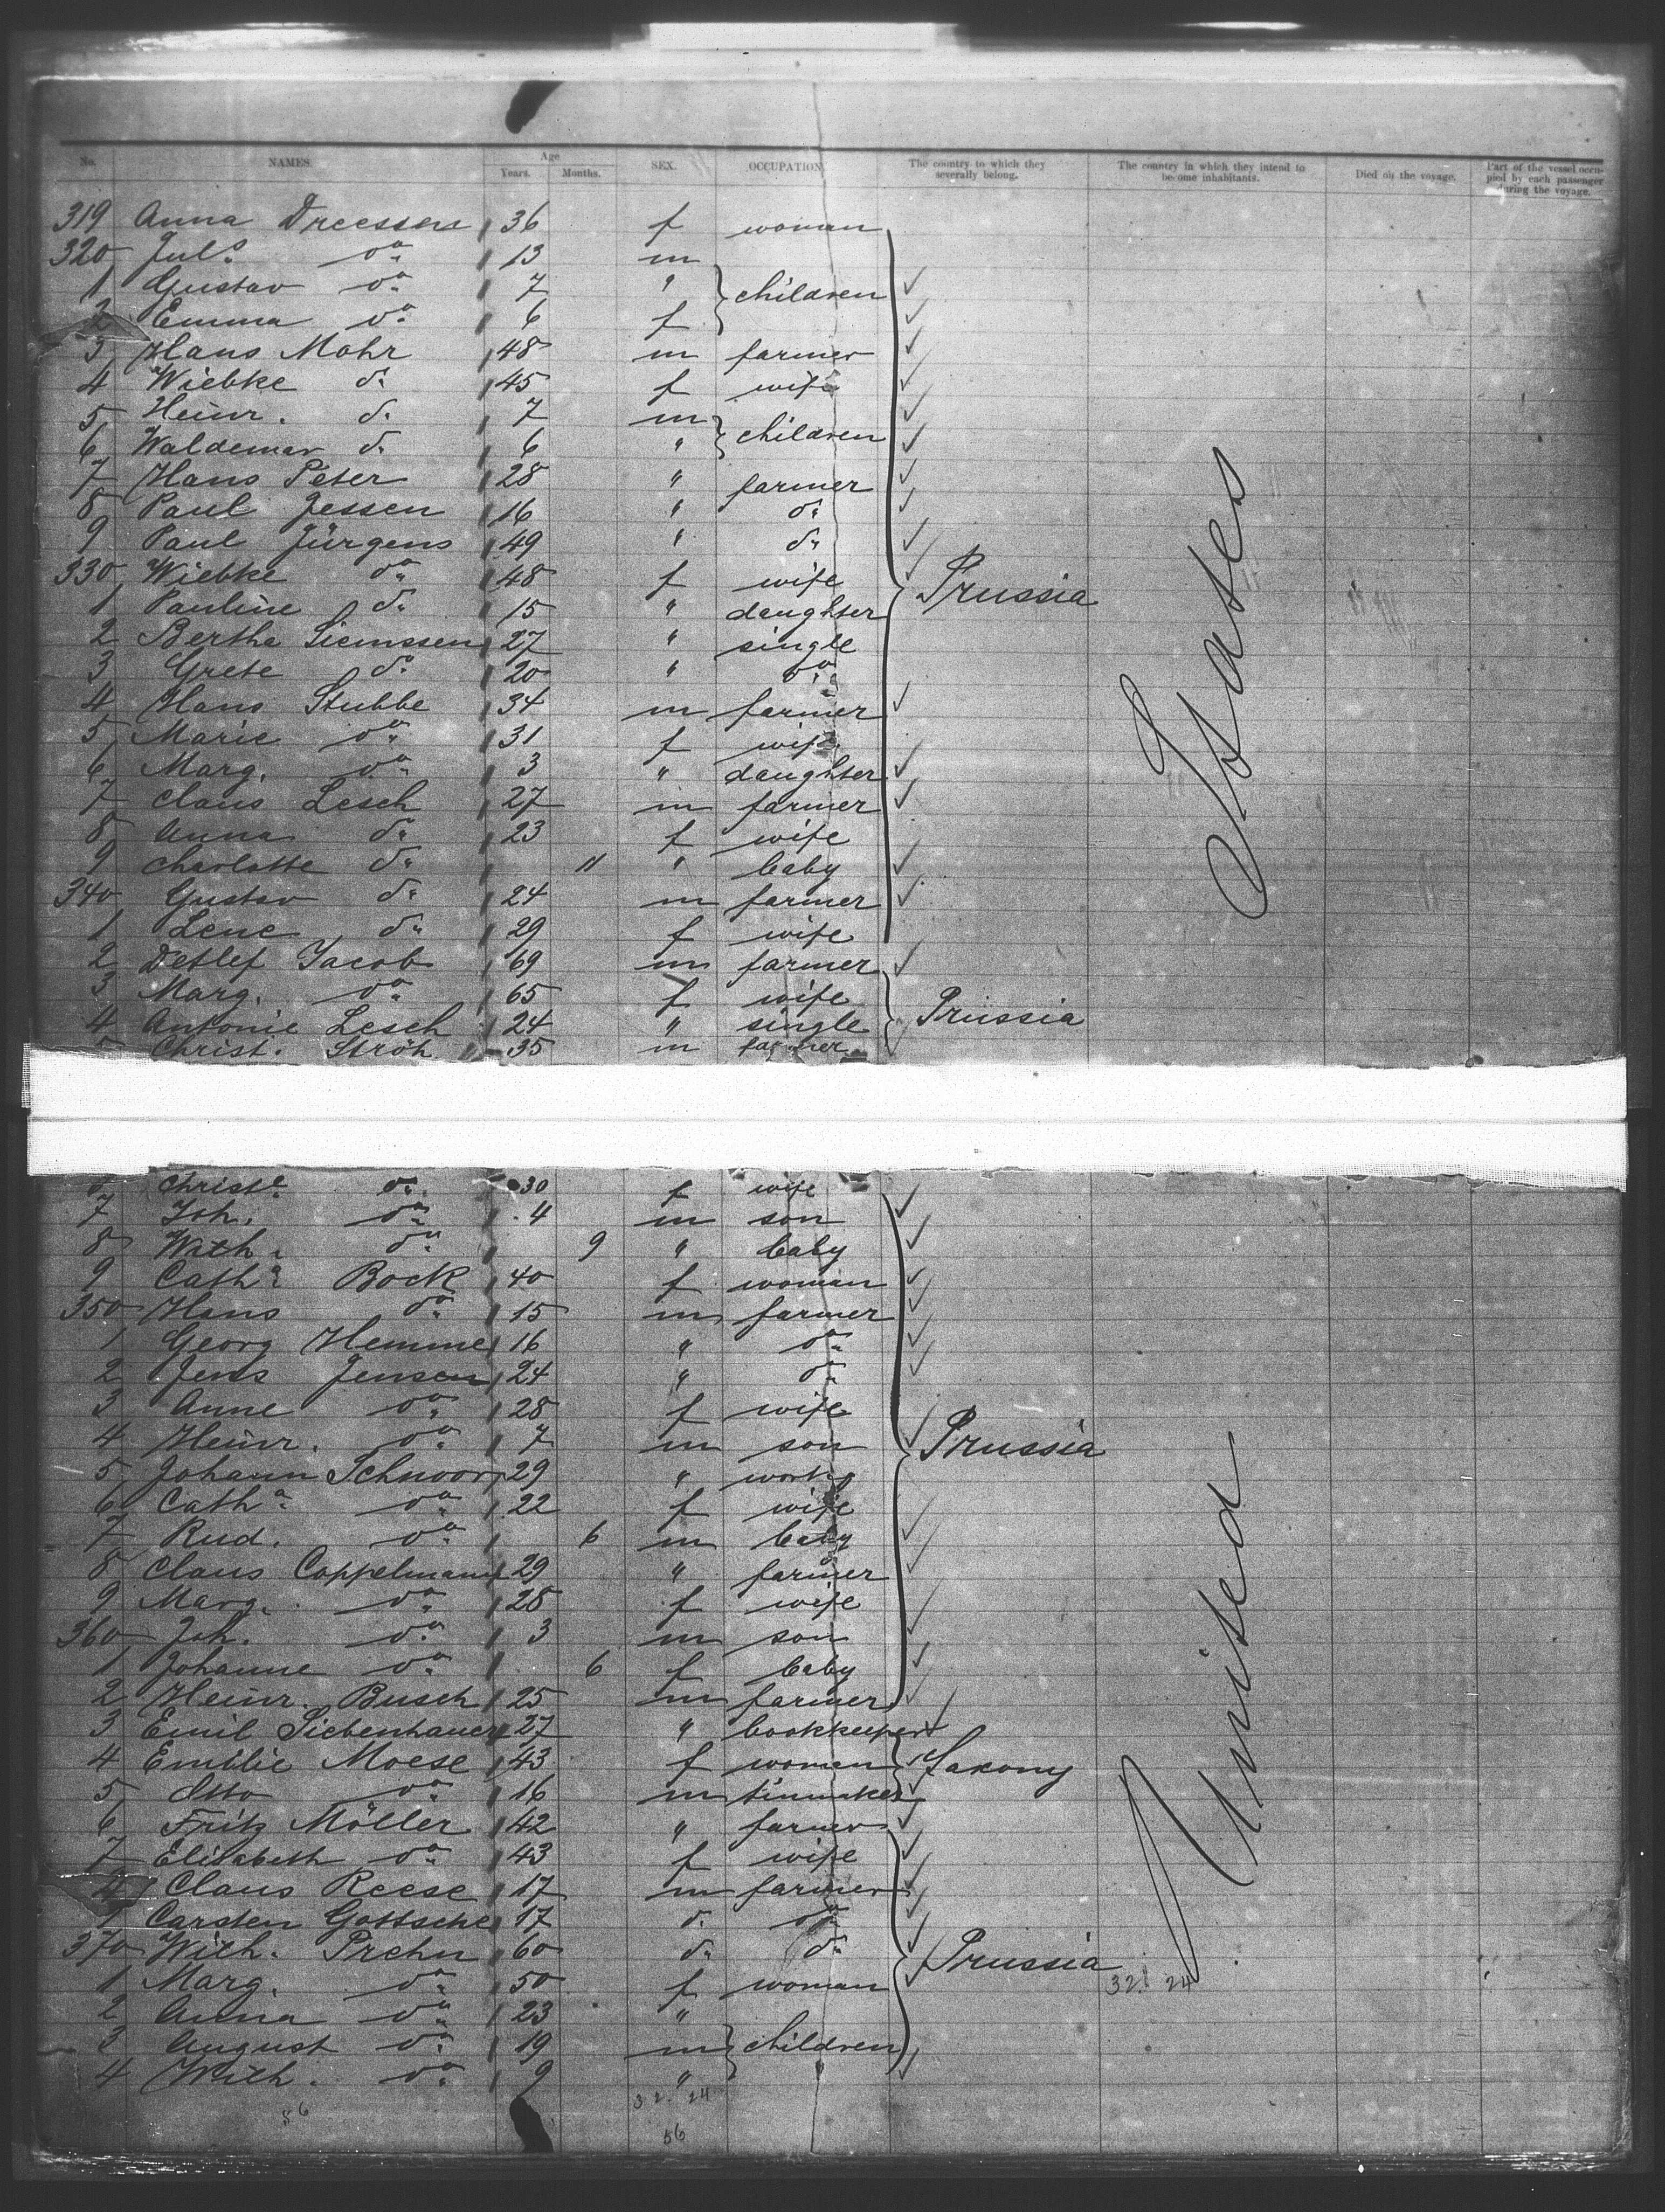 No. NAMES. Age Years. Months. SEX. OCCUPATION. The country to which they severally belong. The country in which they intend to become inhabitants. Died on the voyage. Part of the vessel occupied by each passenger during the voyage.
319 Anna Dreessen 36 f woman
320 Juls. do. 13 m
1 Gustav do. 7 " children
2 Emma do. 6 f
3 Hans Mohr 48 m farmer
4 Wiebke do. 45 f wife
5 Heinr. do. 7 m children
6 Waldemar do. 6 "
7 Hans Peter 28 " farmer
8 Paul Jessen 16 " do.
9 Paul Jürgens 49 " do.
330 Wiebke do. 48 f wife Prussia
1 Pauline do. 15 " daughter
2 Bertha Siemssen 27 " single
3 Grete do. 20 " do.
4 Hans Stubbe 34 m farmer
5 Marie do. 31 f wife
6 Marg. do. 3 " daughter
7 Claus Lesch 27 m farmer
8 Anna do. 23 f wife
9 Charlotte do. 11 " baby
340 Gustav do. 24 m farmer
1 Lene do. 29 f wife
2 Detlef Jacob 69 m farmer
3 Marg. do. 65 f wife
4 Antonie Lesch 24 " single Prussia
5 Christ. Ströh 35 m farmer
States
Christe. do. 30 f wife
7 Joh. do. 4 m son
8 Wilh. do. 9 " baby
9 Catha. Bock 40 f woman
350 Hans do. 15 m farmer
1 Georg Hemme 16 " do.
2 Jens Jensen 24 " do.
3 Anne do. 28 f wife
4 Heinr. do. 7 m son Prussia
5 Johann Schnoor 29 "
6 Catha. do. 22 f wife
7 Rud. do. 6 m baby
8 Claus Coppelmann 29 " farmer
9 Marg. do. 28 f wife
360 Joh. do. 3 m son
1 Johanne do. 6 f baby
2 Heinr. Busch 25 m farmer
3 Emil Siebenhauer 27 " bookkeeper
4 Emilie Moese 43 f woman Saxony
5 Otto do. 16 m tinmaker
6 Fritz Möller 42 " farmer
7 Elisabeth do. 43 f wife
Claus Reese 17 m farmer
9 Carsten Gottsche 17 do. do.
370 Wilh. Prehn 60 do. do. Prussia
1 Marg. do. 50 f woman
2 Anna do. 23 "
3 August do. 19 m children
4 Wilh. do. 9 "
United
32. 24
32. 24
56
56